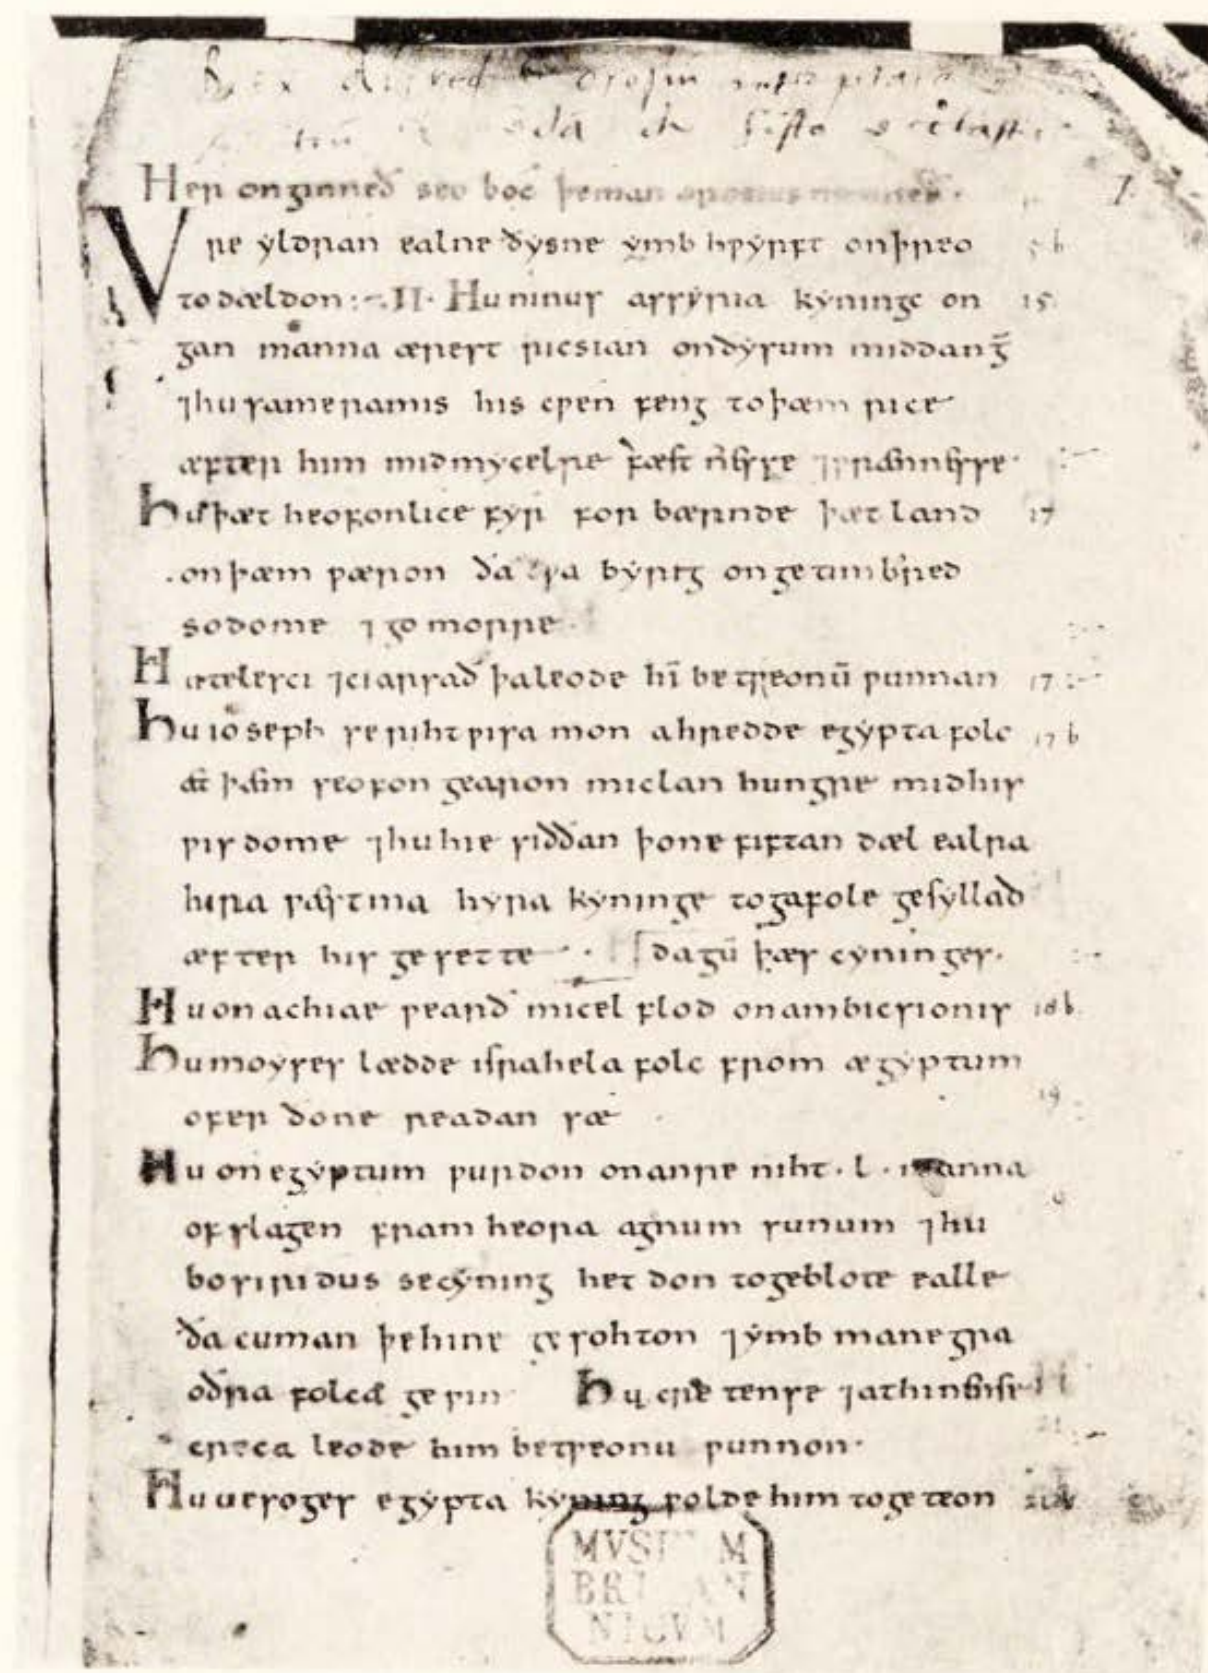 Rex Alfred
Her onginneð seo boc þe man orosius nemneð.
Vre yldran ealne ðysne ymb hƿyrft on þreo
to dældon:~ II. Hu ninus assyria kyningc on
gan manna ærest ricsian on ðysum middang̅
⁊ hu sameramis his cƿen feng to þæm rice
æfter him mid mycelre
Hu þæt heofonlice fyr for bærnde þæt land
on þæm ƿæron ða tƿa byrig on getimbred
sodome ⁊ gomorre.
Hu telesci ⁊ ciarsað þa leode hī betƿeonū ƿunnan
Hu ioseph se rihtƿisa mon ahredde egypta folc
æt þam seofon gearon miclan hungre mid his
ƿisdome ⁊ hu hie siððan þone fiftan dæl ealra
hira ƿæstma hyra kyninge to gafole gesyllað
æfter his gesette dagū þæs cyninges.
Hu on achiae ƿearð micel flod on ambicsionis
Hu moyses lædde israhela folc from ægyptum
ofer ðone readan sæ
Hu on egyptum ƿurdon on anre niht . L . manna
ofslagen fram heora agnum sunum ⁊ hu
bosiridus se cyning het don to geblote ealle
ða cuman þe hine gesohton ⁊ ymb manegra
oðra folca geƿin Hu cretense ⁊ athiniense
creca leode him betƿeonu ƿunnon.
Hu uesoges egypta kyning ƿolde him to geteon
MVSEVM
BRITAN
NICVM